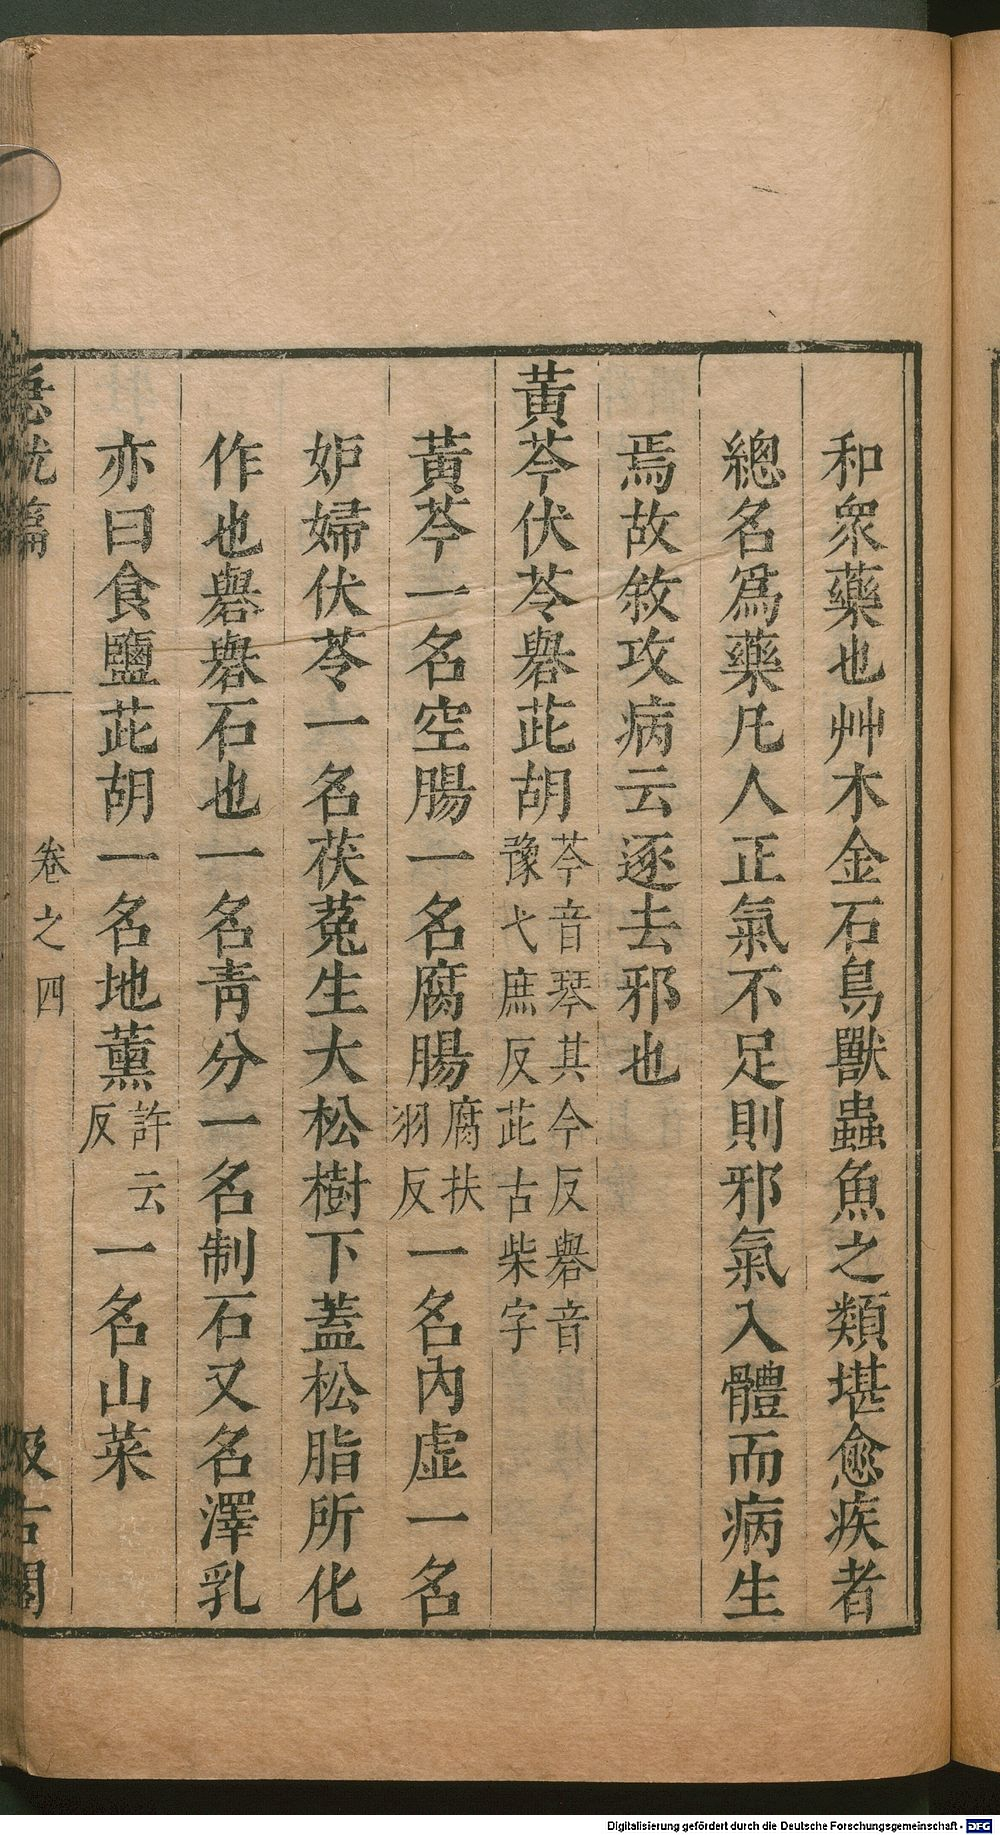 和衆藥也艸木金石鳥獸蟲魚之類堪愈疾者
總名爲藥凡人正氣不足則邪氣入體而病生
焉故敘攻病云逐去邪也
黃芩伏苓礜茈胡芩音琴其今反礜音
豫弋庶反茈古柴字
黃芩一名空腸一名腐腸腐扶
羽反一名內虛一名
妒婦伏苓一名茯菟生大松樹下蓋松脂所化
作也礜礜石也一名靑分一名制石又名澤乳
亦曰食鹽茈胡一名地薰許云
反一名山菜
急就篇 卷之四 汲古閣
Digitalisierung gefördert durch die Deutsche Forschungsgemeinschaft - DFG